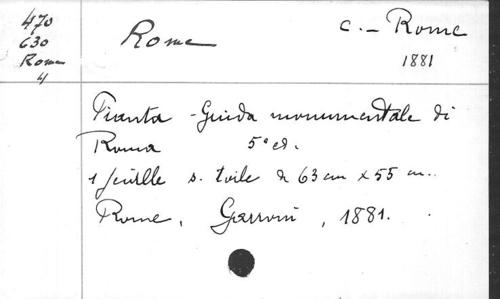 470
630
Rome
4
Rome
C. - Rome
1881
Pianta - Guida monumentale di
Roma 5ª ed.
1 feuille s. toile de 63 cm x 55 cm.
Rome, Garroni, 1881.